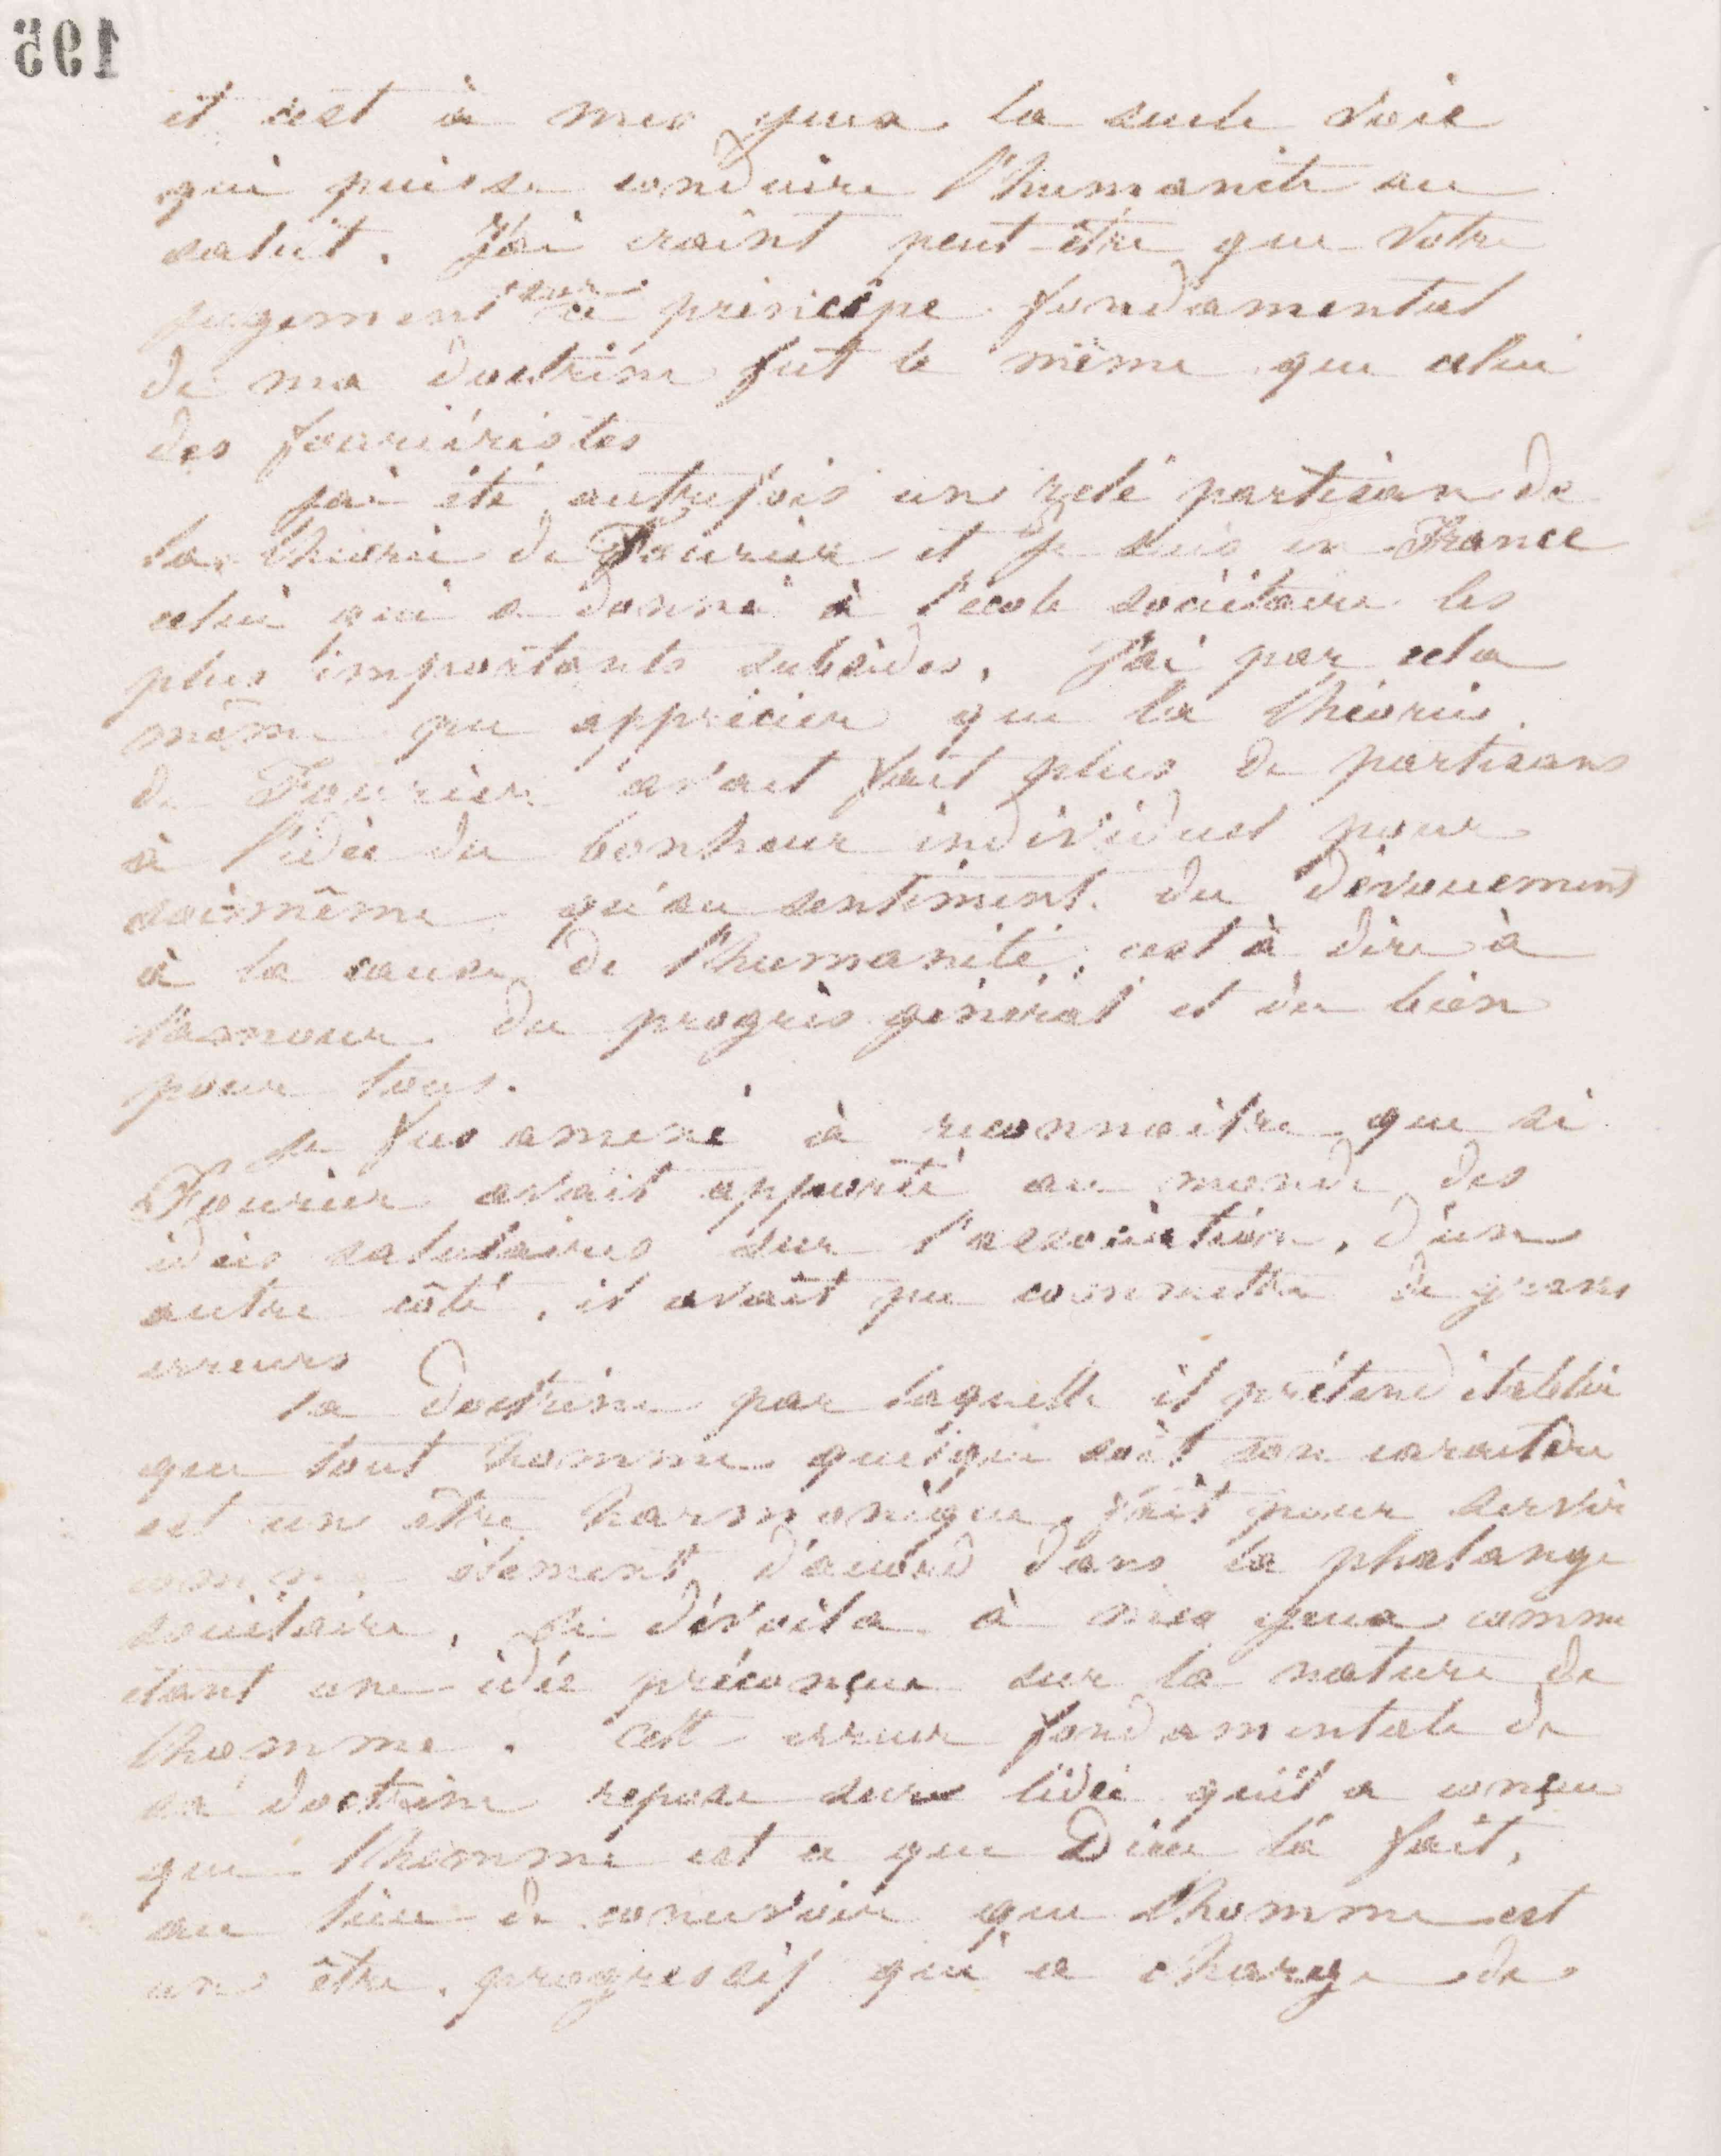 195
et c'est à mes yeux la seule voie
qui puisse conduire l'humanité au
salut. J'ai craint peut-être que votre
jugement sur ce principe fondamental
de ma doctrine fut le même que celui
des fouriéristes
J'ai été autrefois un zelé partisan de
la théorie de Fourier et je suis en France
celui qui a donné à l'école sociétaire les
plus importants subsides. J'ai par cela
même pu apprécier que la théorie
de Fourier avait fait plus de partisans
à l'idée du bonheur individuel pour
soi-même qu'au sentiment du dévouement
à la cause de l'humanité, c'est à dire à
l'amour du progrès général et du bien
pour tous.
Je fus amené à reconnaître que si
Fourier avait apporté au monde des
idées salutaires sur l'association, d'un
autre côté, il avait pu commettre de graves
erreurs
La doctrine par laquelle il prétend établir
que tout homme quelque soit son caractère
est un être harmonique, fait pour servir
comme élément d'accord dans la phalange
sociétaire, se dévoila à mes yeux comme
étant une idée préconçue sur la nature de
l'homme. Cette erreur fondamentale de
sa doctrine repose sur l'idée qu'il a conçue
que l'homme est ce que Dieu l'a fait,
au lieu de concevoir que l'homme est
un être progressif qui a charge de